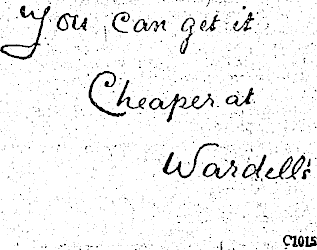 You can get it
Cheaper at
Wardell's
C1015